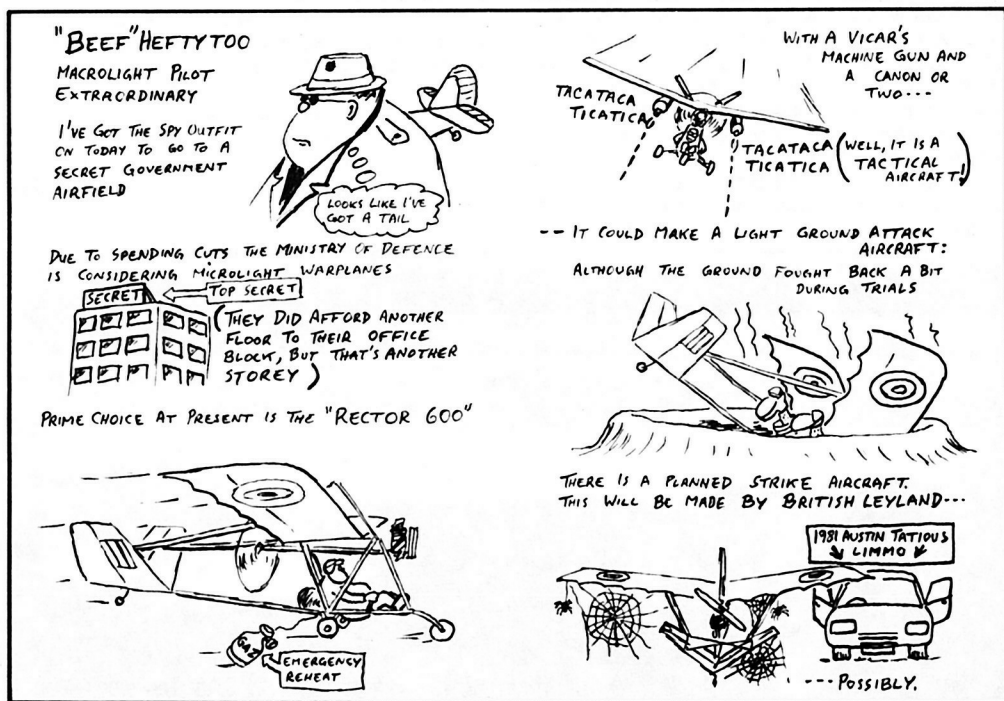 "BEEF" HEFTYTOO
MACROLIGHT PILOT
EXTRAORDINARY
I'VE GOT THE SPY OUTFIT
ON TODAY TO GO TO A
SECRET GOVERNMENT
AIRFIELD
LOOKS LIKE I'VE
GOT A TAIL
DUE TO SPENDING CUTS THE MINISTRY OF DEFENCE
IS CONSIDERING MICROLIGHT WARPLANES
SECRET
TOP SECRET
(THEY DID AFFORD ANOTHER
FLOOR TO THEIR OFFICE
BLOCK, BUT THAT'S ANOTHER
STOREY)
PRIME CHOICE AT PRESENT IS THE "RECTOR 600"
GAZ
EMERGENCY
REHEAT
WITH A VICAR'S
MACHINE GUN AND
A CANON OR
TWO---
TACATACA
TICATICA
TACATACA
TICATICA
(WELL, IT IS A
TACTICAL
AIRCRAFT!)
-- IT COULD MAKE A LIGHT GROUND ATTACK
AIRCRAFT:
ALTHOUGH THE GROUND FOUGHT BACK A BIT
DURING TRIALS
THERE IS A PLANNED STRIKE AIRCRAFT.
THIS WILL BE MADE BY BRITISH LEYLAND---
1981 AUSTIN TATIOUS
LIMMO
---- POSSIBLY.